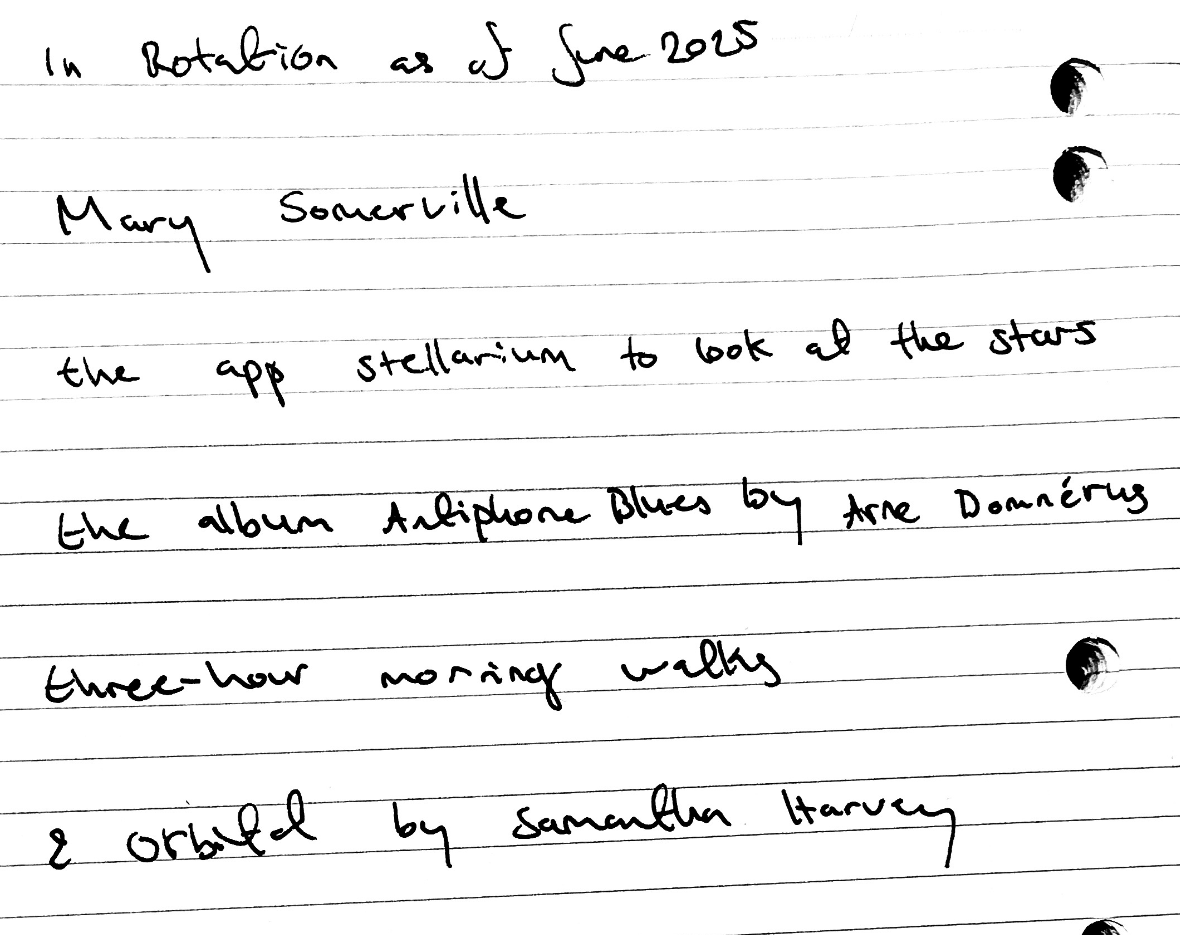 In Rotation as of June 2025
Mary Somerville
the app stellarium to look at the stars
the album Antiphone Blues by Arne Domnérus
three-hour morning walks
& Orbital by Samantha Harvey